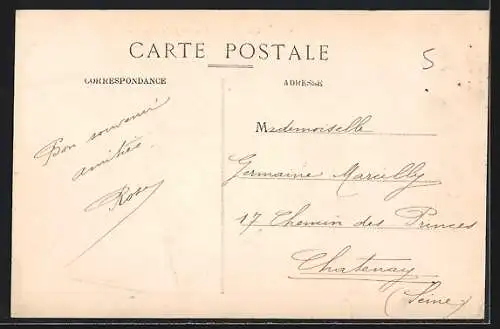 CARTE POSTALE
5
CORRESPONDANCE
ADRESSE
Bon souvenir
amitiés
Rose
Mademoiselle
Germaine Marcelly
17 Chemin des Princes
Chatenay
(Seine)